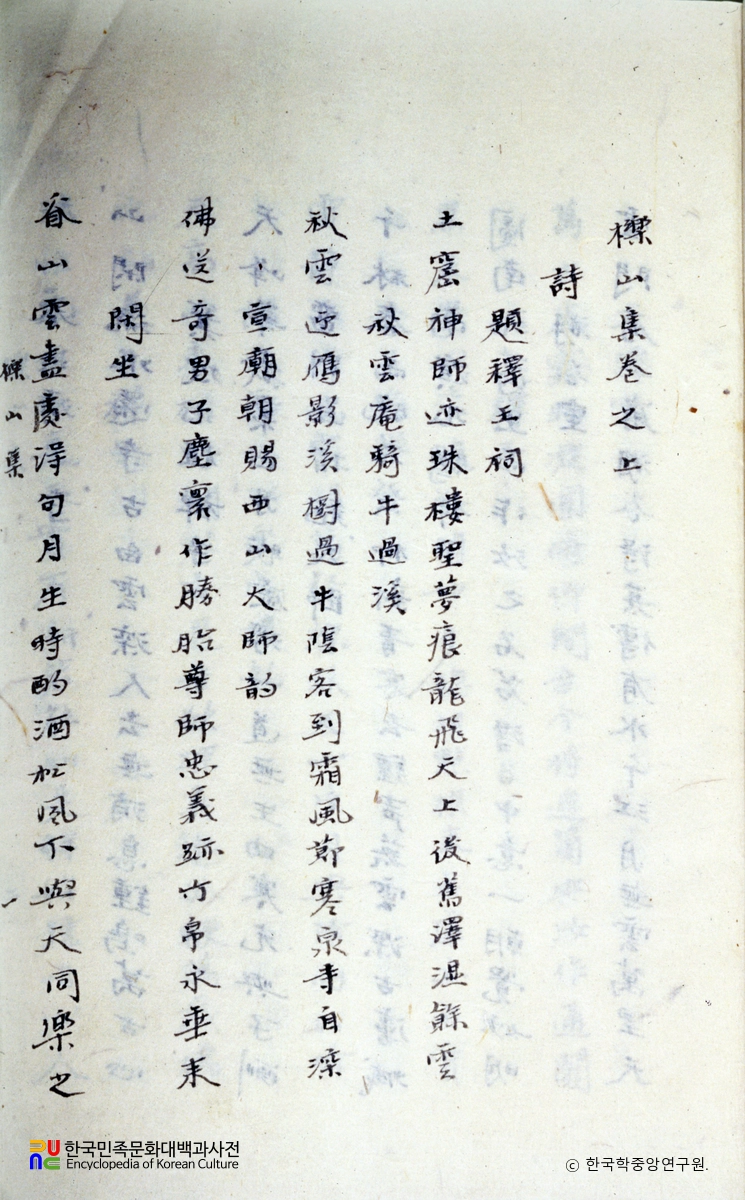 櫟山集卷之上
詩
題釋王祠
土窟神師迹珠樓聖夢痕龍飛天上後舊澤濕餘雲
秋雲庵騎牛過溪
秋雲迎鴈影溪樹過牛陰客到霜風節寒泉寺自深
宣廟朝賜西山大師韵
佛送奇男子塵寰作勝胎尊師忠義跡竹帛永垂來
閑坐
看山雲盡處得句月生時酌酒松風下與天同樂之
櫟山集
一
한국민족문화대백과사전
Encyclopedia of Korean Culture
© 한국학중앙연구원.